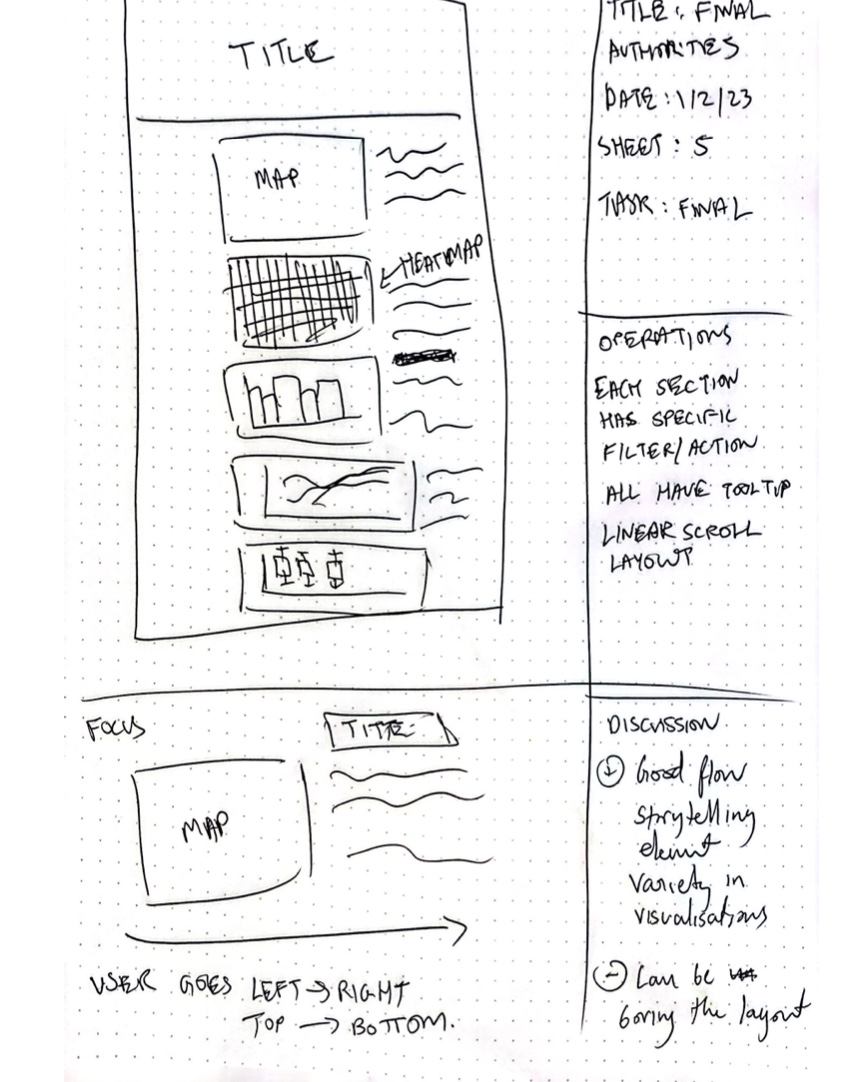 TITLE
MAP
HEATMAP
TITLE: FINAL
AUTHORITES
DATE: 1/2/23
SHEET: 5
TASK: FINAL
OPERATIONS
EACH SECTION
HAS SPECIFIC
FILTER/ACTION
ALL HAVE TOOLTIP
LINEAR SCROLL
LAYOUT
FOCUS
TITLE
MAP
USER GOES LEFT → RIGHT
TOP → BOTTOM.
DISCUSSION
+ Good flow
storytelling
element
variety in
visualisations
- Can be
boring the layout